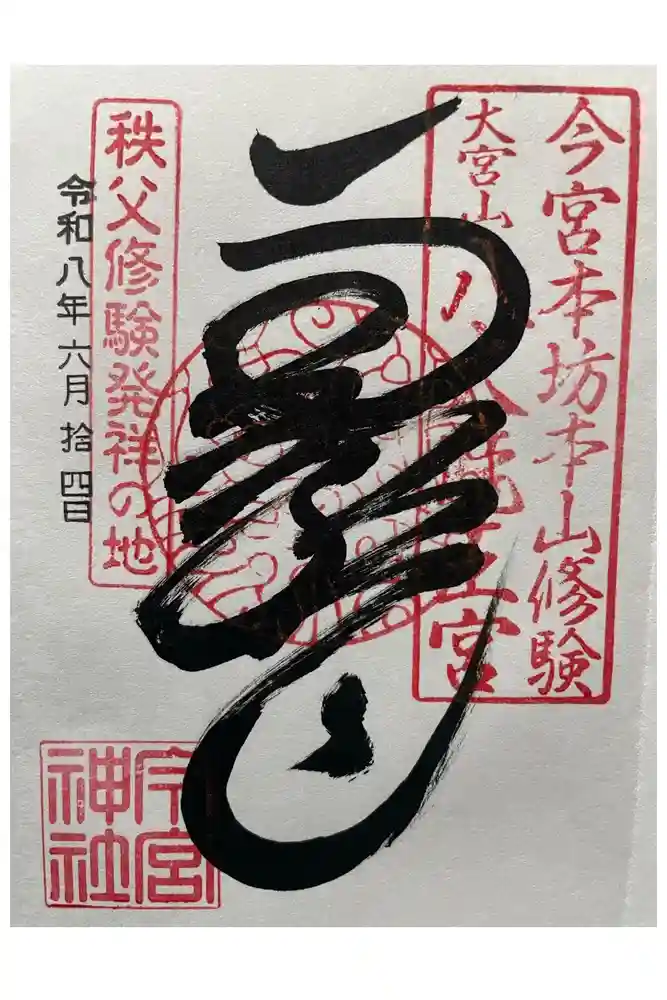 今宮本坊本山修験
大宮山 八大龍王宮
秩父修験発祥の地
令和八年六月拾四日
今宮
神社